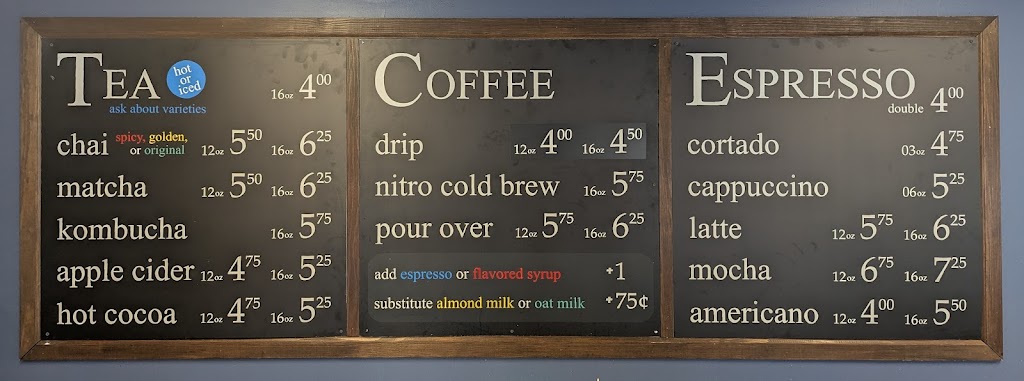 TEA hot or iced 16oz 4.00
ask about varieties
chai spicy, golden, or original 12oz 5.50 16oz 6.25
matcha 12oz 5.50 16oz 6.25
kombucha 16oz 5.75
apple cider 12oz 4.75 16oz 5.25
hot cocoa 12oz 4.75 16oz 5.25
COFFEE
drip 12oz 4.00 16oz 4.50
nitro cold brew 16oz 5.75
pour over 12oz 5.75 16oz 6.25
add espresso or flavored syrup +1
substitute almond milk or oat milk +75¢
ESPRESSO double 4.00
cortado 03oz 4.75
cappuccino 06oz 5.25
latte 12oz 5.75 16oz 6.25
mocha 12oz 6.75 16oz 7.25
americano 12oz 4.00 16oz 5.50